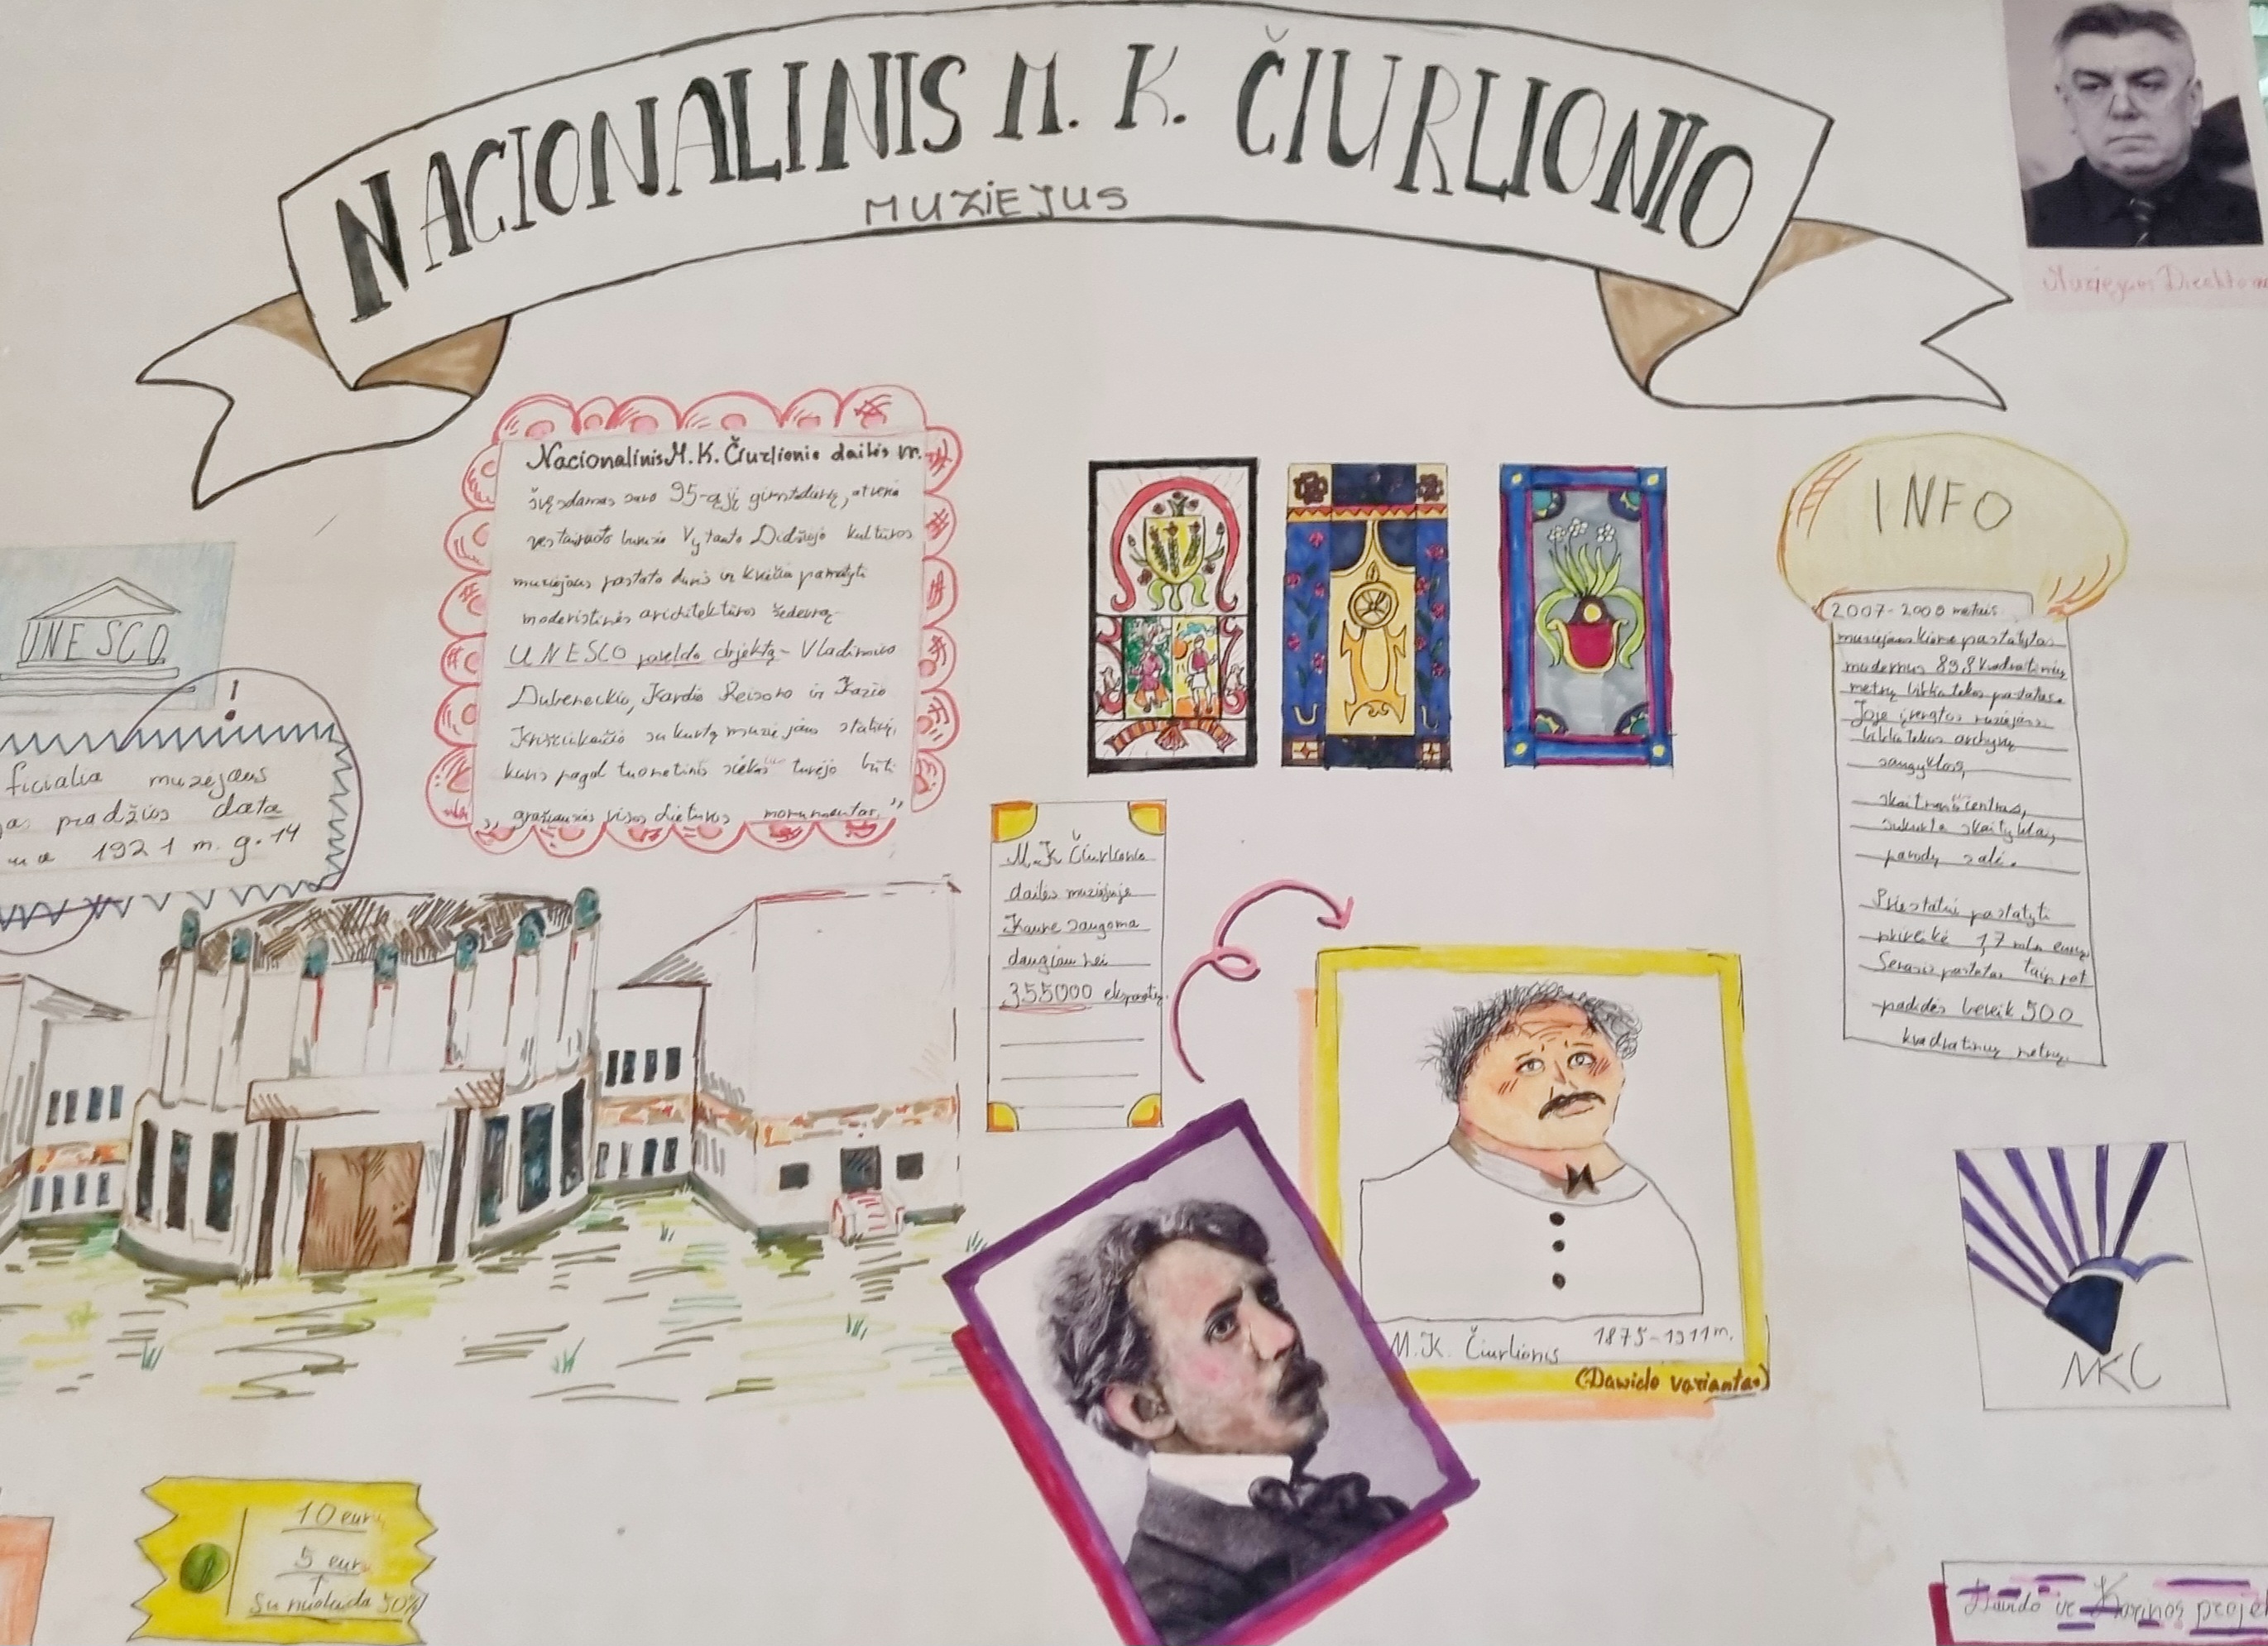 NACIONALINIS M. K. ČIURLIONIO
MUZIEJUS
Muziejaus Direktorius
Nacionalinis M. K. Čiurlionio dailės m.
švęsdamas savo 95-ąjį gimtadienį, atveria
restauruoto buvusio Vytauto Didžiojo kultūros
muziejaus pastato duris ir kviečia pamatyti
modernistinės architektūros šedevrą-
UNESCO paveldo objektą- Vladimiro
Dubeneckio, Karolio Reisono ir Kazio
Kriščiukaičio sukurtą muziejaus statinį,
kuris pagal tuometinis siekas turėjo būti
„ gražiausias visos Lietuvos monumentas."
UNESCO
!
ficialia muzejaus
as pradžios data
ma 1921 m. g. 14
M. K Čiurlionio
dailės muziejuje
Kaune saugoma
daugiau nei
355000 eksponatų.
INFO
2007-2008 metais
muziejaus kieme pastatytas
modernus 89,8 kvadratinių
metrų bibliotekos pastatas.
Joje įrengtos muziejaus
bibliotekos archyvų
saugyklos,
skaitmen centras,
sukurta skaitykla,
parodų salė.
Priestatui pastatyti
prireikė 1,7 mln eurų.
Senasis pastatas taip pat
padidės beveik 500
kvadratinių metrų.
M.K. Čiurlionis 1875-1911m.
(Dawido variantas)
NKC
10 eurų
5 eurų
Su nuolaida 50%
Davido ir Karinos projek